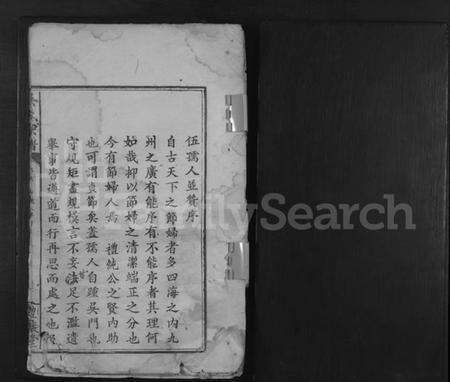 伍孺人並贊序
自古天下之節婦者多四海之內九
州之廣有能序有不能序者其理何
如哉抑以節婦之清潔端正之分也
今有節婦人焉 禮純公之賢內助
也可謂貞節矣蓋孺人自踵吳門也
守規矩畫規模言不妄法足不濫遺
舉事皆遵道而行再思而處之也
FamilySearch